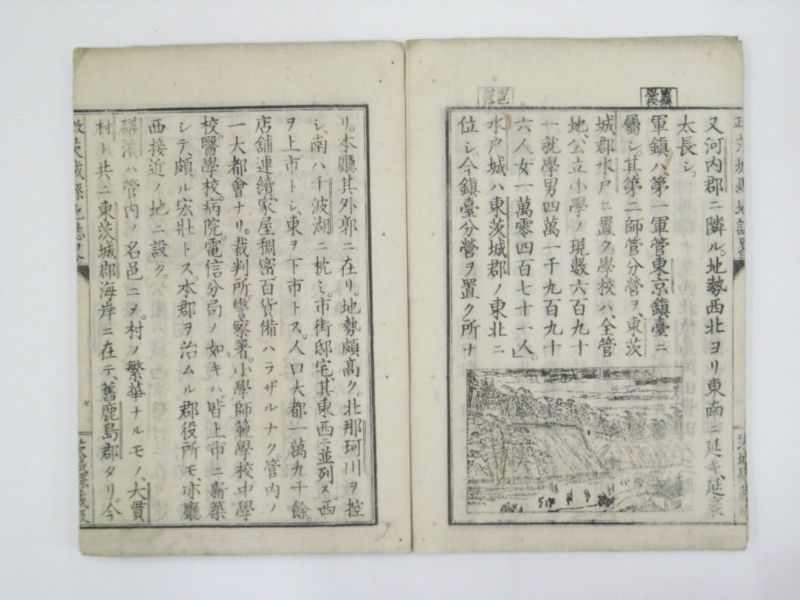 軍鎮
學校
邑
又河內郡ニ隣ル。地勢西北ヨリ東南ニ延キ、延袤
太長シ。
軍鎮ハ、第一軍管東京鎮臺ニ
屬シ其第二師管分營ヲ、東茨
城郡水戸ニ置ク學校ハ、全管
地、公立小學ノ現數六百九十
一就學男四萬一千九百九十
六人女一萬零四百七十一人。」
水戸城ハ東茨城郡ノ東北ニ
位シ今鎮臺分營ヲ置ク所ナ
リ。本廳其外郭ニ在リ。地勢頗高ク。北那珂川ヲ控
シ、南ハ千波湖ニ枕ミ。市街邸宅其東西ニ並列ス。西
ヲ上市トシ、東ヲ下市トス。人口大都一萬九千餘。
店舗連續家屋稠密百貨備ハラザルナク管內ノ
一大都會ナリ。裁判所警察署。小學師範學校中學
校醫學校。病院電信分局ノ如キハ皆上市ニ新築
シテ頗ル宏壯トス本郡ヲ治ムル郡役所モ、亦廳
西接近ノ地ニ設ク。
磯濱ハ管內ノ名邑ニメ。村ノ繁華ナルモノ、大貫
村ト共ニ東茨城郡海岸ニ在テ、舊鹿島郡タリ。今
茨城縣地誌畧